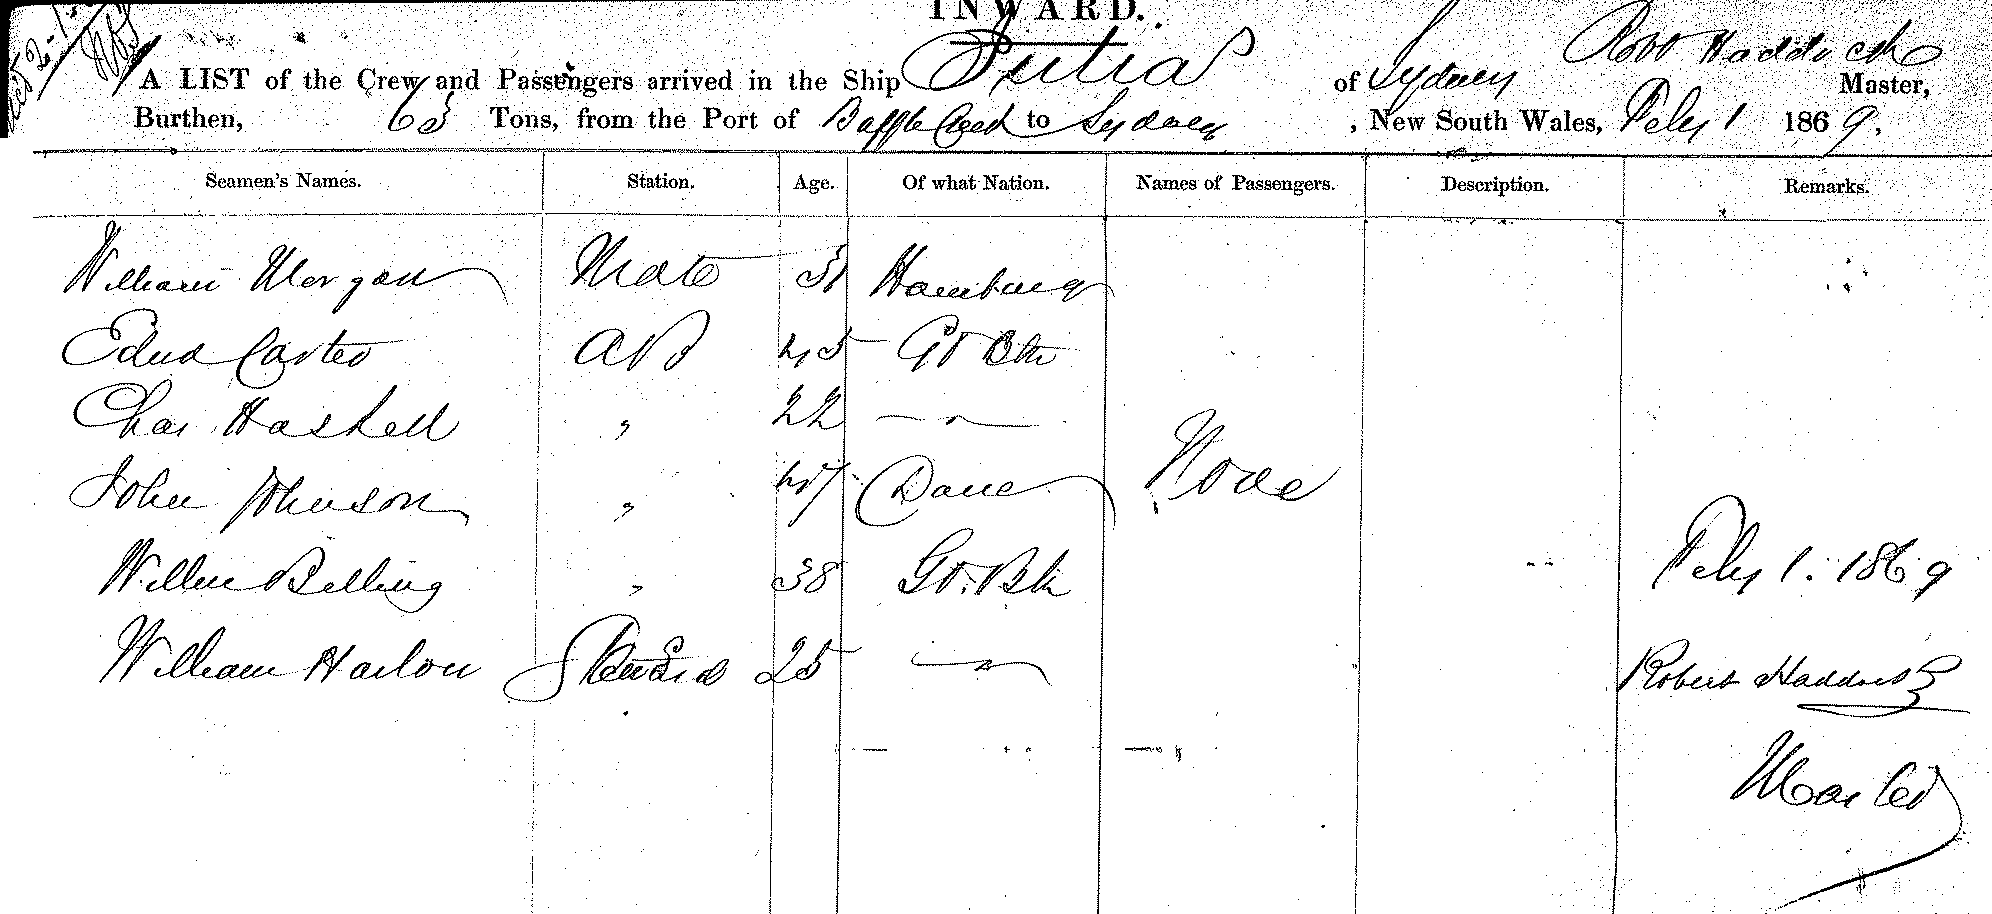 INWARD.
A LIST of the Crew and Passengers arrived in the Ship of Sydney Robt Haddock Master,
Burthen, 63 Tons, from the Port of Baffle Creek to Sydney , New South Wales, Feby 1 1869.
Seamen's Names. Station. Age. Of what Nation. Names of Passengers. Description. Remarks.
William Morgan Mate 31 Hamburg
Edwd Carter AB 45 Gt Btn
Chas Haskell " 22 — " —
John Johnson " 47 Dane None
Willm Belling " 38 Gt. Btn Feby 1. 1869
William Harlow Steward 25 — " — Robert Haddock
Master